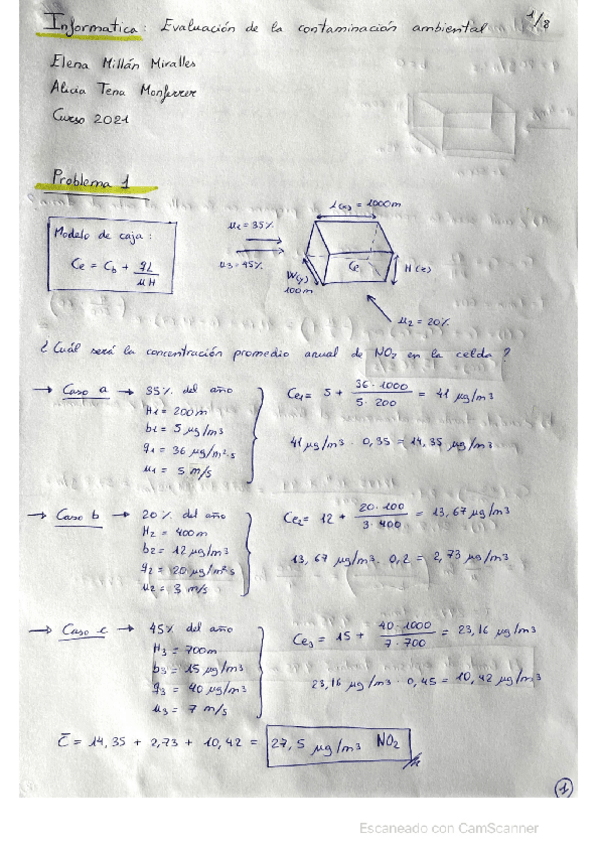 Informatica: Evaluación de la contaminación ambiental 1/8
Elena Millán Miralles
Alicia Tena Monferrer
Curso 2021
Problema 1
Modelo de caja:
Ce = Cb + qL / μH
μ1 = 35%
μ3 = 45%
L(x) = 1000m
W(y)
100m
Ce
H(z)
μ2 = 20%
¿Cuál será la concentración promedio anual de NO2 en la celda?
→ Caso a → 35% del año
H1 = 200m
b1 = 5 μg/m3
q1 = 36 μg/m2·s
μ1 = 5 m/s
Ce1 = 5 + 36·1000 / 5·200 = 41 μg/m3
41 μg/m3 · 0,35 = 14,35 μg/m3
→ Caso b → 20% del año
H2 = 400m
b2 = 12 μg/m3
q2 = 20 μg/m2s
μ2 = 3 m/s
Ce2 = 12 + 20·100 / 3·400 = 13,67 μg/m3
13,67 μg/m3 · 0,2 = 2,73 μg/m3
→ Caso c → 45% del año
H3 = 700m
b3 = 15 μg/m3
q3 = 40 μg/m3
μ3 = 7 m/s
Ce3 = 15 + 40·1000 / 7·700 = 23,16 μg/m3
23,16 μg/m3 · 0,45 = 10,42 μg/m3
C̄ = 14,35 + 2,73 + 10,42 = 27,5 μg/m3 NO2
1
Escaneado con CamScanner